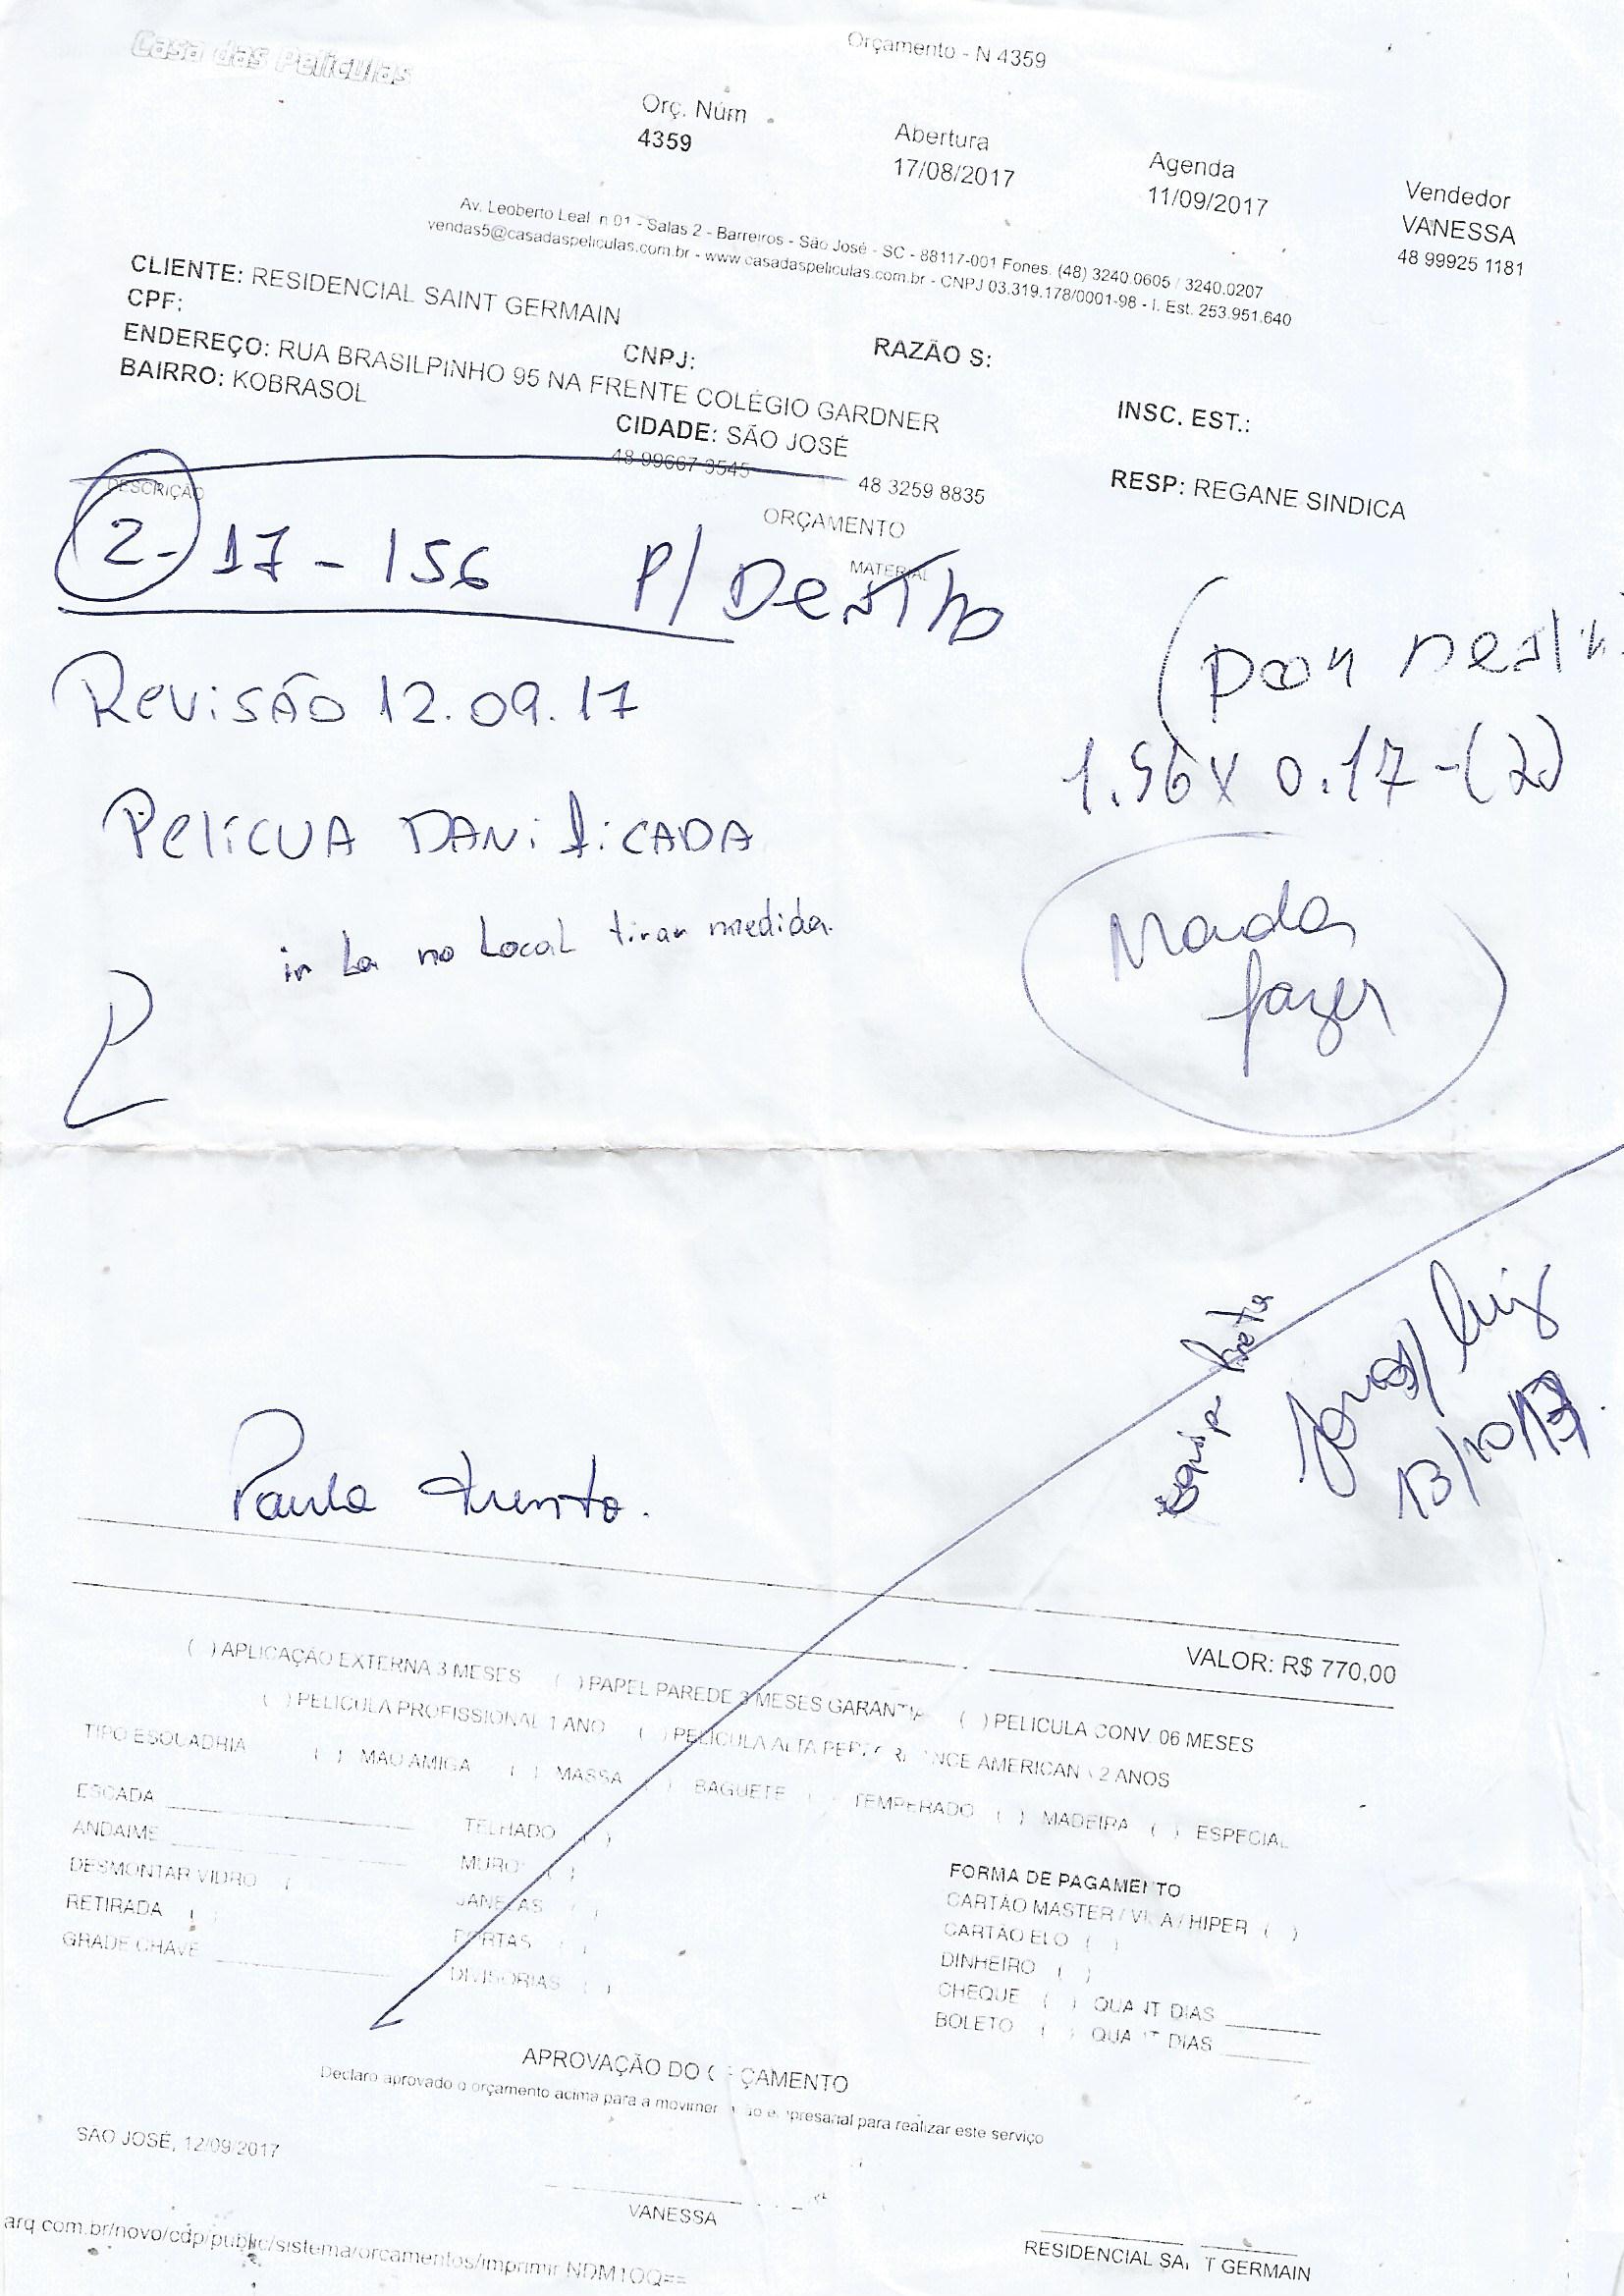 Casa das Películas
Orçamento - N 4359
Orç. Núm
4359
Abertura
17/08/2017
Agenda
11/09/2017
Vendedor
VANESSA
48 99925 1181
Av. Leoberto Leal n 01 - Salas 2 - Barreiros - São José - SC - 88117-001 Fones: (48) 3240.0605 / 3240.0207
vendas5@casadaspeliculas.com.br - www.casadaspeliculas.com.br - CNPJ 03.319.178/0001-98 - I. Est. 253.951.640
CLIENTE: RESIDENCIAL SAINT GERMAIN
CPF:
CNPJ:
RAZÃO S:
INSC. EST.:
ENDEREÇO: RUA BRASILPINHO 95 NA FRENTE COLÉGIO GARDNER
BAIRRO: KOBRASOL
CIDADE: SÃO JOSÉ
RESP: REGANE SINDICA
48 99667 3545
48 3259 8835
DESCRIÇÃO
ORÇAMENTO
MATERIAL
2- 17 - 156 P/
REVISÃO 12.09.17
1.56 x 0.17 - (2)
PELICUA DANIFICADA
ir La no Local tirar medida.
Manda
fazer
Paula
13/10/17
VALOR: R$ 770,00
( ) APLICAÇÃO EXTERNA 3 MESES ( ) PAPEL PAREDE 3 MESES GARANTIA ( ) PELICULA CONV. 06 MESES
( ) PELICULA PROFISSIONAL 1 ANO ( ) PELICULA ALTA AMERICAN 2 ANOS
TIPO ESQUADRIA ( ) MAO AMIGA ( ) MASSA ( ) BAGUETE ( ) TEMPERADO ( ) MADEIRA ( ) ESPECIAL
ESCADA
TELHADO ( )
ANDAIME
MURO ( )
DESMONTAR VIDRO (
JANELAS ( )
RETIRADA ( )
PORTAS ( )
GRADE CHAVE
DIVISORIAS ( )
FORMA DE PAGAMENTO
CARTÃO MASTER / VISA / HIPER ( )
CARTÃO ELO ( )
DINHEIRO ( )
CHEQUE ( ) QUANT DIAS
BOLETO ( ) QUANT DIAS
APROVAÇÃO DO ORÇAMENTO
Declaro aprovado o orçamento acima para a empresarial para realizar este serviço
SÃO JOSÉ, 12/09/2017
VANESSA
RESIDENCIAL SAINT GERMAIN
arq.com.br/novo/cdp/public/sistema/orcamentos/imprimir/NDM1OQ==